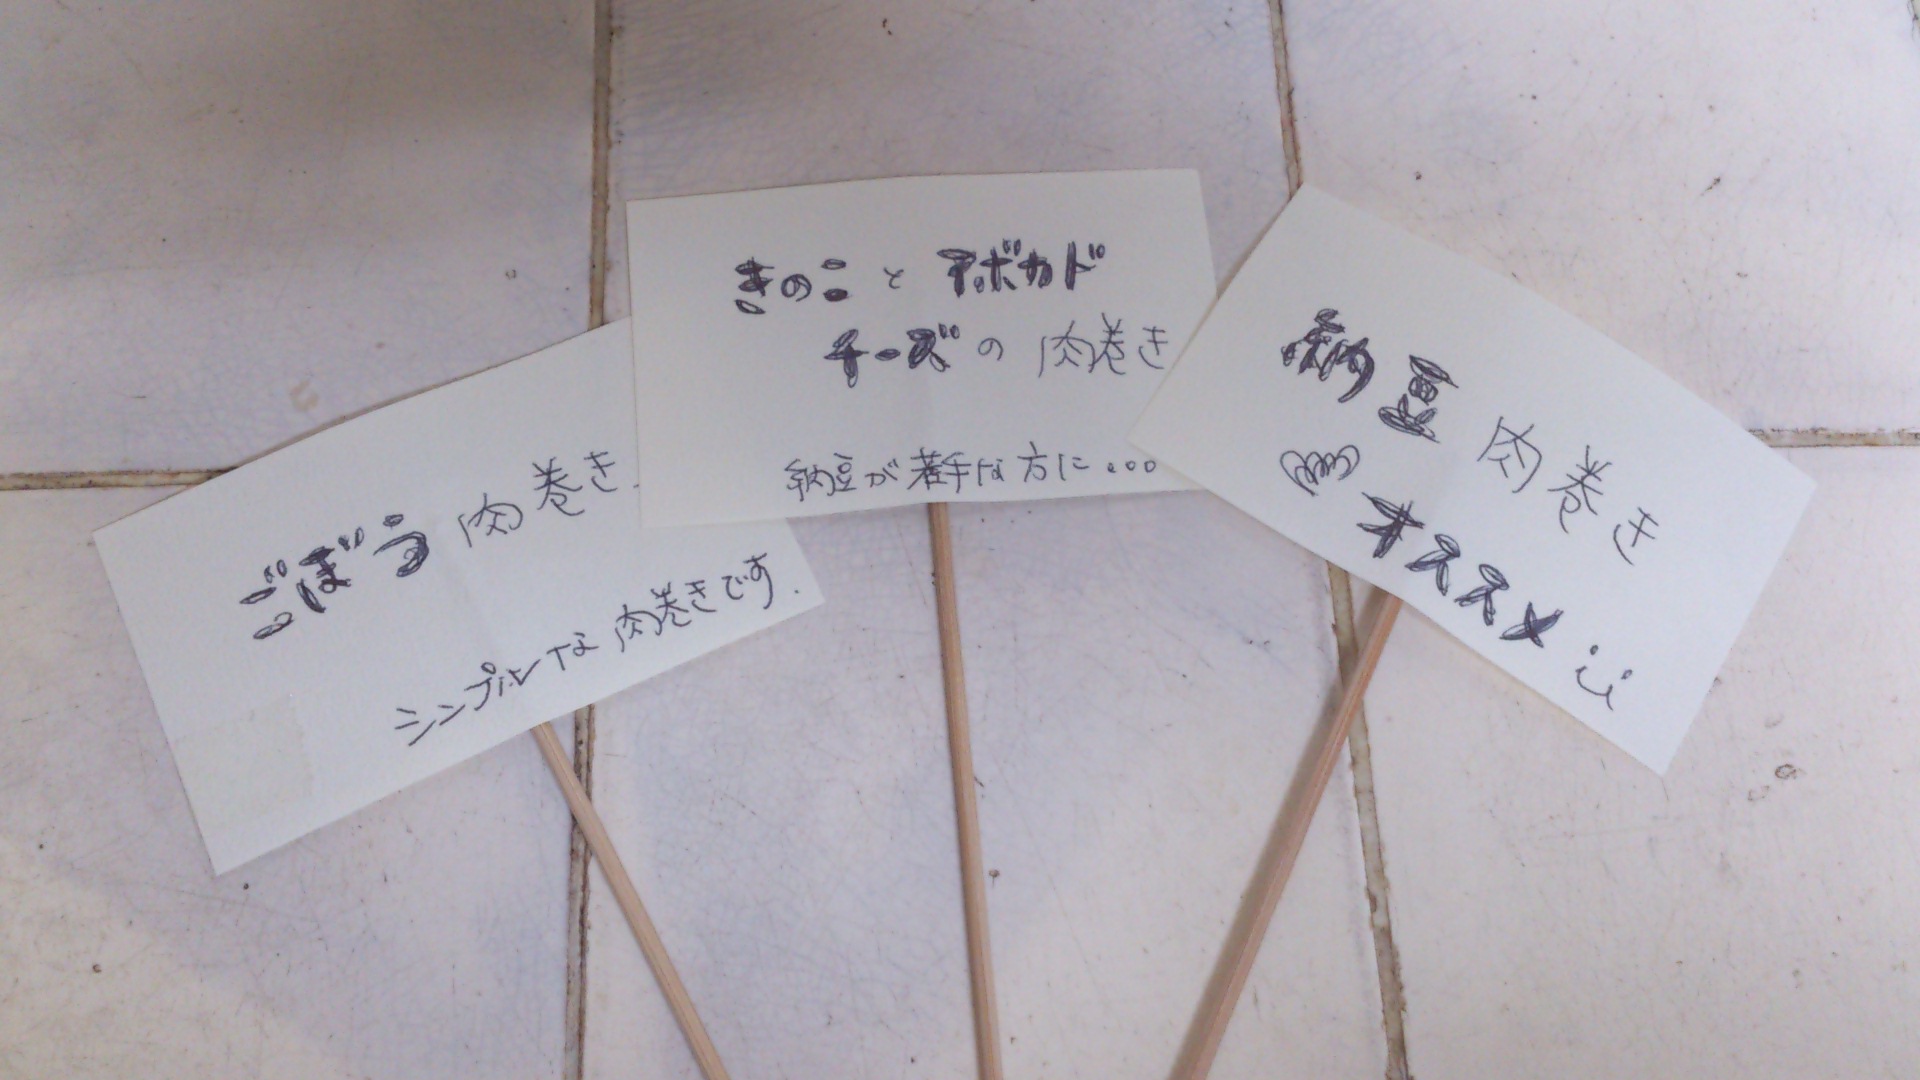 ごぼう肉巻き.
シンプルな肉巻きです.
きのこ と アボカド
チーズ の 肉巻き
納豆が苦手な方に...
納豆 肉巻き
オススメ